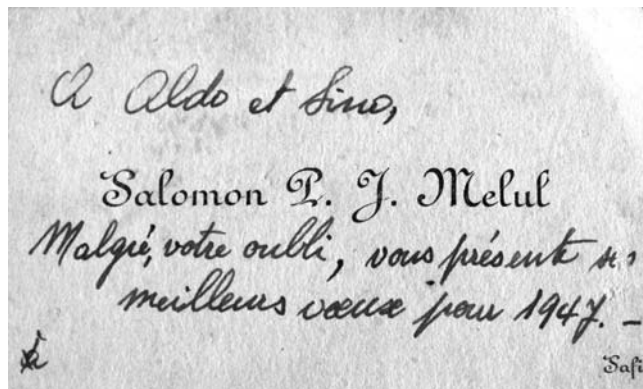 A Aldo et Sino,
Salomon P. J. Melul
Malgré, votre oubli, vous présente
meilleurs vœux pour 1947. –
à
Safi